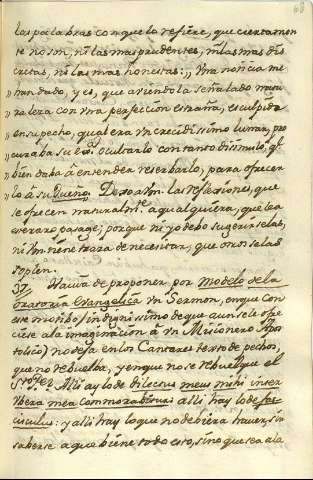 68
las palabras con que lo refiere, que ciertamen
te no son, ni las mas prudentes, ni las mas dis
cretas, ni las mas honestas: „ Una noticia me
„ han dado, y es, que aviendola señalado natu
„ raleza con una perfección estraña, esculpida
„ en su pecho, qual era un crecidissimo lunar, pro
„ curaba su ocultarlo con tanto disimulo, q.e
„ bien daba á entender reserbarlo, para ofrecer
lo á su Dueño. Dexo a Vm. las reflexiones, que
se ofrecen naturalm.te a qualquiera, que lea
este raro pasage; porque ni yo debo sugerirselas,
ni Vm. tiene traza de necesitar, que otros se las
soplen.
37. Havia de proponer por modelo de la
Oratoria Evangelica un Sermon, en que con
ese motibo (indignissimo de que aun se le ofre
ciese a la imaginacion á un Misionero Apos
tolico) no dexa en los Cantares texto de pechos,
que no rebuelva, y en que no se rebuelque el
Alli ay lo de dilectus meus mihi inter
ubera mea commorabitur: alli hay lo de fas
ciculus: y alli hay lo que no debiera haver, sin
saberse a que biene todo esto, sino que sea a la